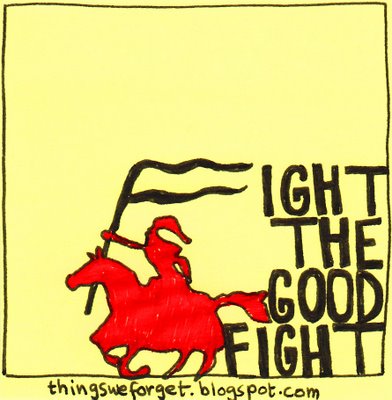 FIGHT
THE
GOOD
FIGHT
thingsweforget.blogspot.com